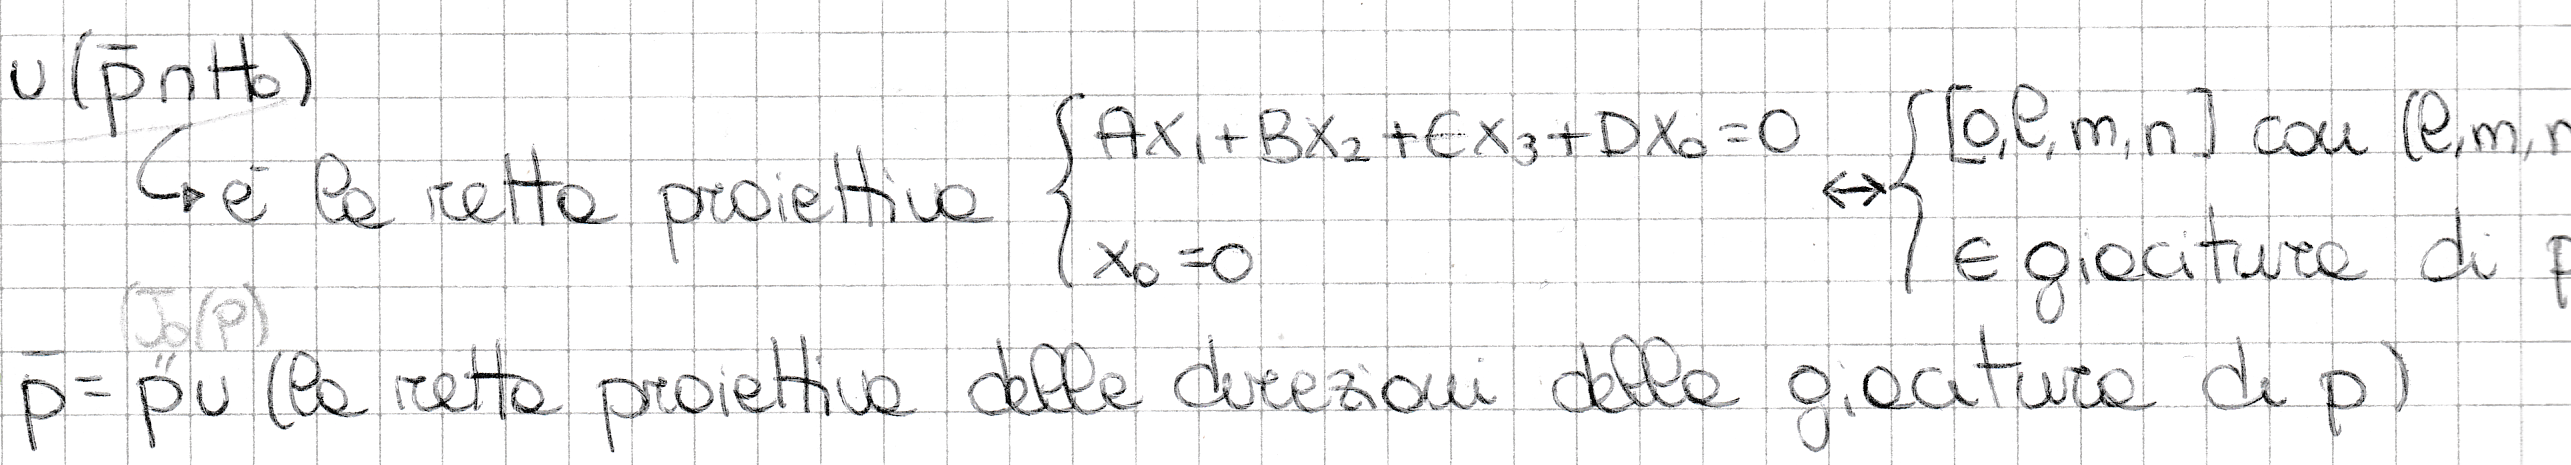 ∪ (p̄ ∩ H₀)
↳ è la retta proiettiva { AX₁ + BX₂ + CX₃ + DX₀ = 0 ↔ { [0, l, m, n] con (l, m, n
X₀ = 0 ∈ giacitura di p
(J₀(p)
p̄ = p ∪ (la retta proiettiva delle direzioni della giacitura di p)